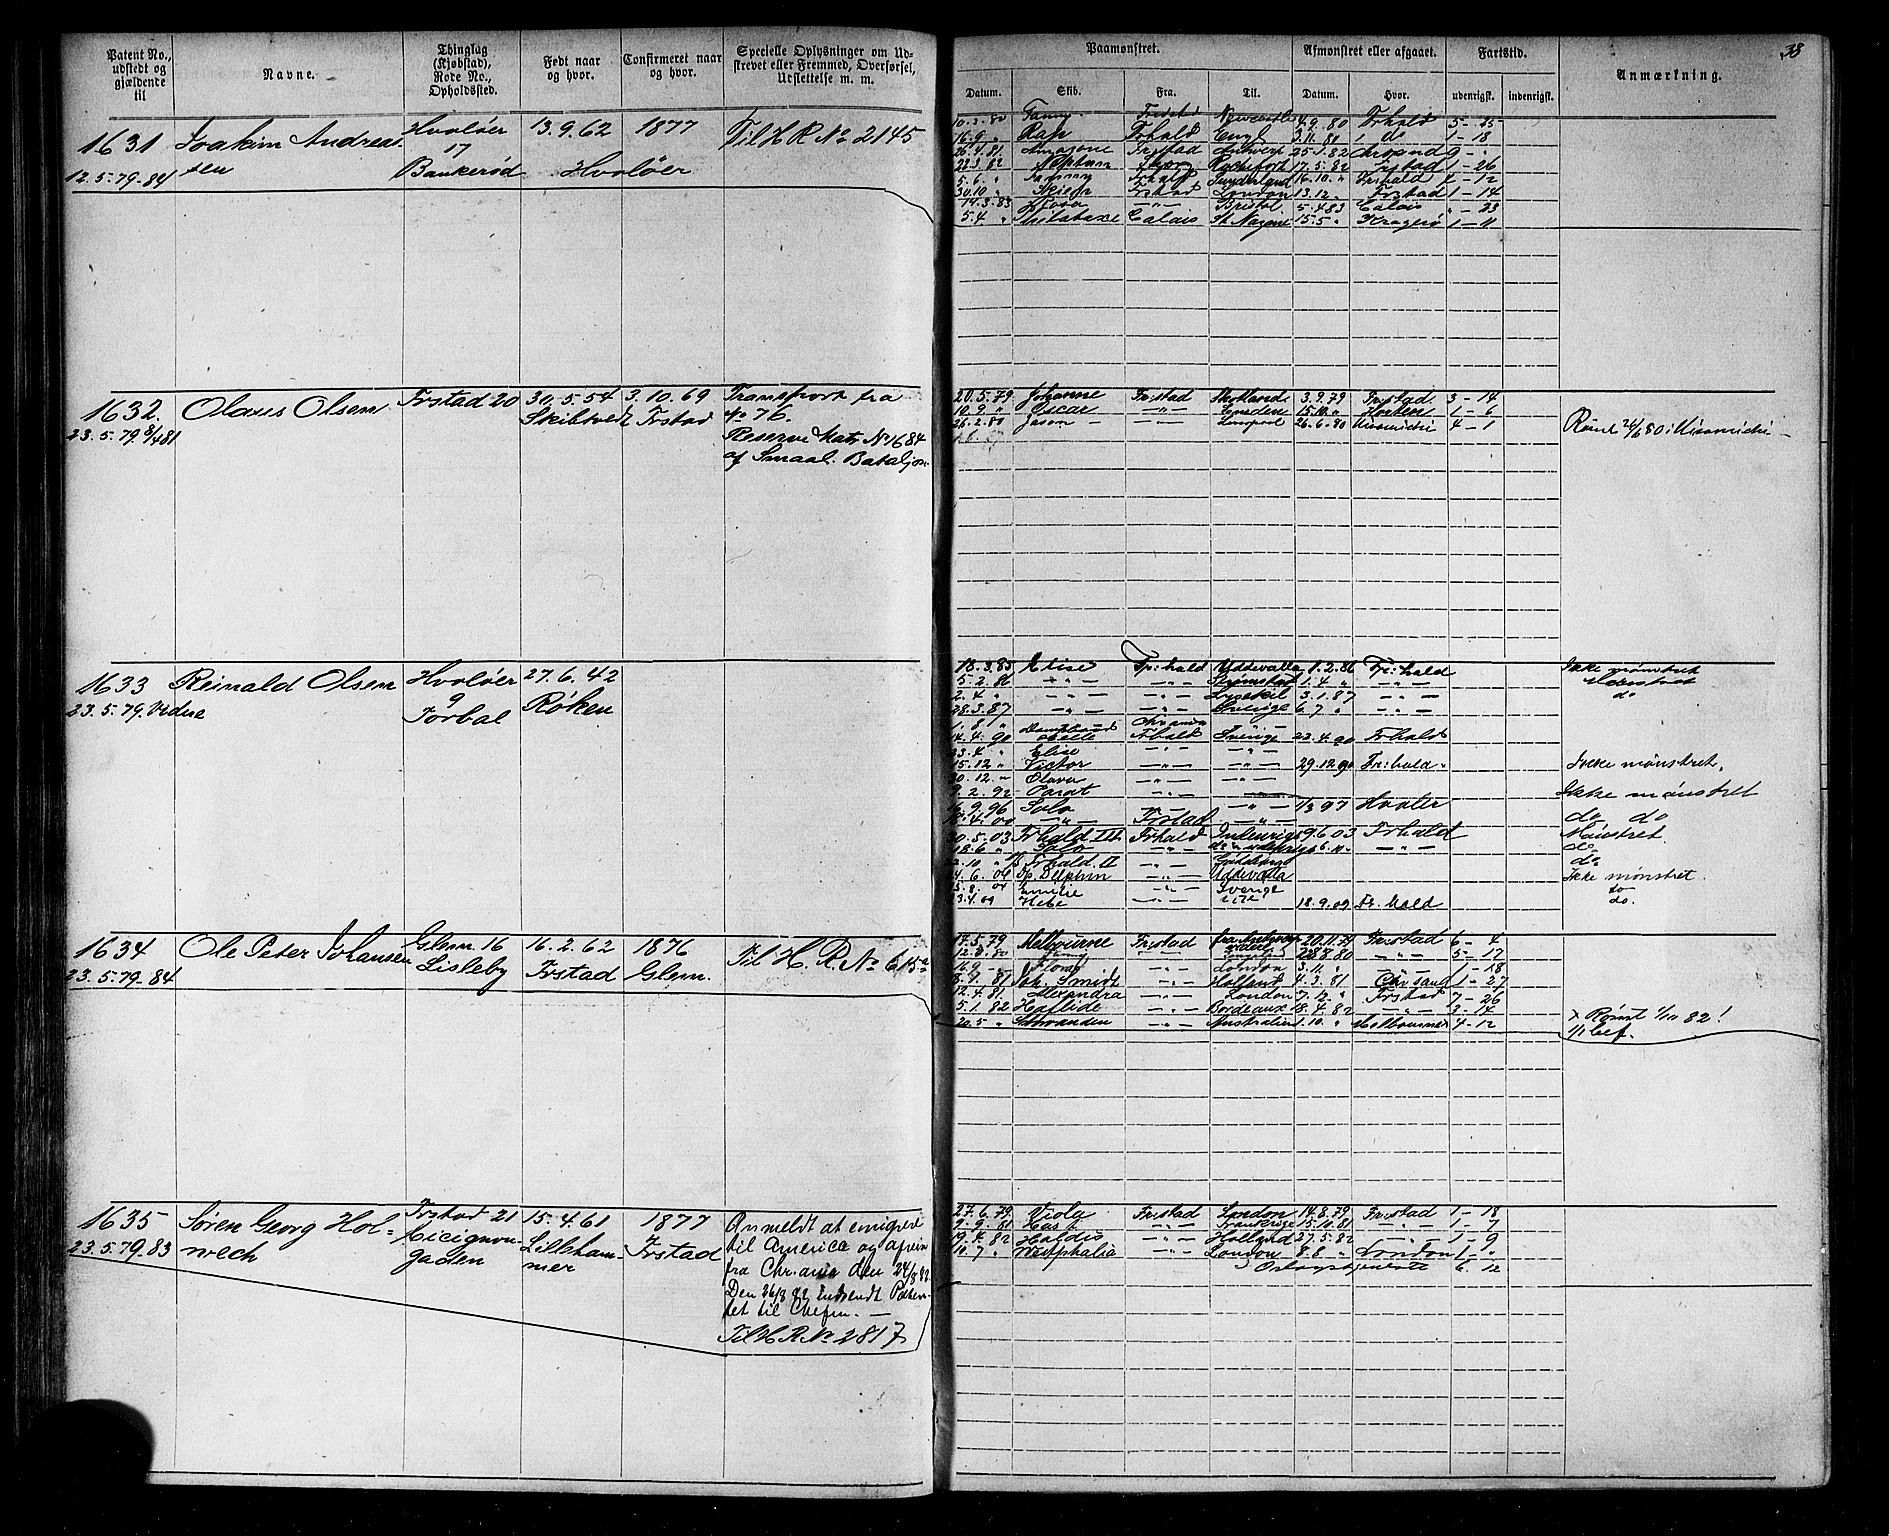 38
Patent No., udstedt og gjældende til
Navne.
Thinglag (Kjøbstad), Rode No., Opholdssted.
Født naar og hvor.
Confirmeret naar og hvor.
Specielle Oplysninger om Udstrevet eller Fremmed, Overførsel, Udslettelse m. m.
Paamønstret.
Afmønstret eller afgaaet.
Fartstid.
Anmærkning.
Datum. Skib. Fra. Til. Datum. Hvor. udenrigst. indenrigst.
1631 Joakim Andreas- Hvaløer 13.9.62 1877 Til H R No 2145
sen 17
12.5.79-84 Bankerød Hvaløer
10.3.80 Fanny Frestad Newcastle 4.9.80 Frhald 5-25
16.9 " Ran Frhald Engl 3.11.80 do 1-18
26.4.81 Amazone Frstad Antwerp 25.1.82
22.3.82 Neptun 17.5.82 Frstad 1-26
5.6. " Frhald Sunderland 16.10. " Frhald
30.10. " Frstad London 13.12. Frstad 1-14
14.3.83 -"- Bristol 5.4.83 Calais "-23
5.4. " Calais St Nazaire 15.5 " Kragerø 1-11
1632. Olaus Olsen Frstad 20 30.5.54 3.10.69 Transport fra
23.5.79 8/4 81 Skibtvedt Frstad No 76.
Reserve Matr No 1684
af Smaal. Bataljon
20.5.79 Johanne Fr:stad Skotland 3.9.79 Fr:stad. 3-14
10.9. " Oscar -"- Emden 15.10. " Horten 1-6
26.2.80 Jason - -"- Liverpool 26.6.80 Miramichi 4-1
Rømt 26/6 80 i Miramichi
1633 Reinald Olsen Hvaløer 27.6.42
23.5.79. Vedvre 9 Røken
Torbal
18.3.85 Elise Fr:hald Uddevalla 1.2.86 Fr:hald Ikke mønstret
5.2.86 -"- -"- Strømstad 1.4 " -"- Mønstret
2.4 " -"- -"- Lysekil 3.1.87 -"- do
28.3.87 -"- -"- Sverige 6.7 " -"-
1.8. "
14.4.90 Frhald Sverige 22.4.90 Frhald
23.4 " Elise -"- -"-
15.12 " Victor -"- 29.12.90 Fr:hald. Ikke mønstret.
30.12. " Olava -"-
9.2.92 -"- Ikke mønstret
16.9.96 Solo -"- 1/3 97 Hvaler
-"- Frstad -"- do do
20.5.03 Frhald III Frhald Indenrigs 9.6.03 Frhald Mønstret
18.6 " Solo -"- -"- do
2.10 " Frhald. II -"- Gøteborg do
4.6.04 Delphin -"- Uddevalla Ikke mønstret.
Emilie -"- Sverige do
3.4.09 Hebe -"- 18.9.09 Fr.hald do.
1634 Ole Peter Johansen Glem. 16 16.2.62 1876 Til H. R. No 615a
23.5.79-84 Lisleby Frstad Glem.
17.5.79 Melbourne Fr:stad 20.11.79 Fr:stad 6-4
12.3.80 -"- England 28.8.80 -"- 5-17
16.9. -"- London 3.11. " -"- 1-18
8.1.81 Joh. Smidt -"- Holland 4.3.81 Chr sand 1-27
12.4.81 Alexandra -"- London 7.12. " Frstad 7-26
5.1.82 Haflide -"- Bordeaux 18.4.82 -"- 3-14
20.5 " -"- Australien 1.10. " Melbourne 4-12
x Rømt 1/10 82!
1635 Søren Georg Hol- Frstad 21 15.4.61 1877 Anmeldt at emigrere
23.5.79,83 wech Lilleham- Frstad til America og afrein
gaden mer fra Chr.ania den 24/8 82
Den 26/8 82 Indsendt Paten-
tet til Chefen. -
Til H R No 2817
27.6.79 Viola Fr:stad London 14.8.79 Fr:stad 1-18
9.9.81 -"- Frankrige 15.10.81 -"- 1-7
19.4.82 Haldis -"- Holland 27.5.82 -"- 1-9
10.7 " Westphalia -"- London 8.8 " London 1-"
Orlogstjeneste 6.12